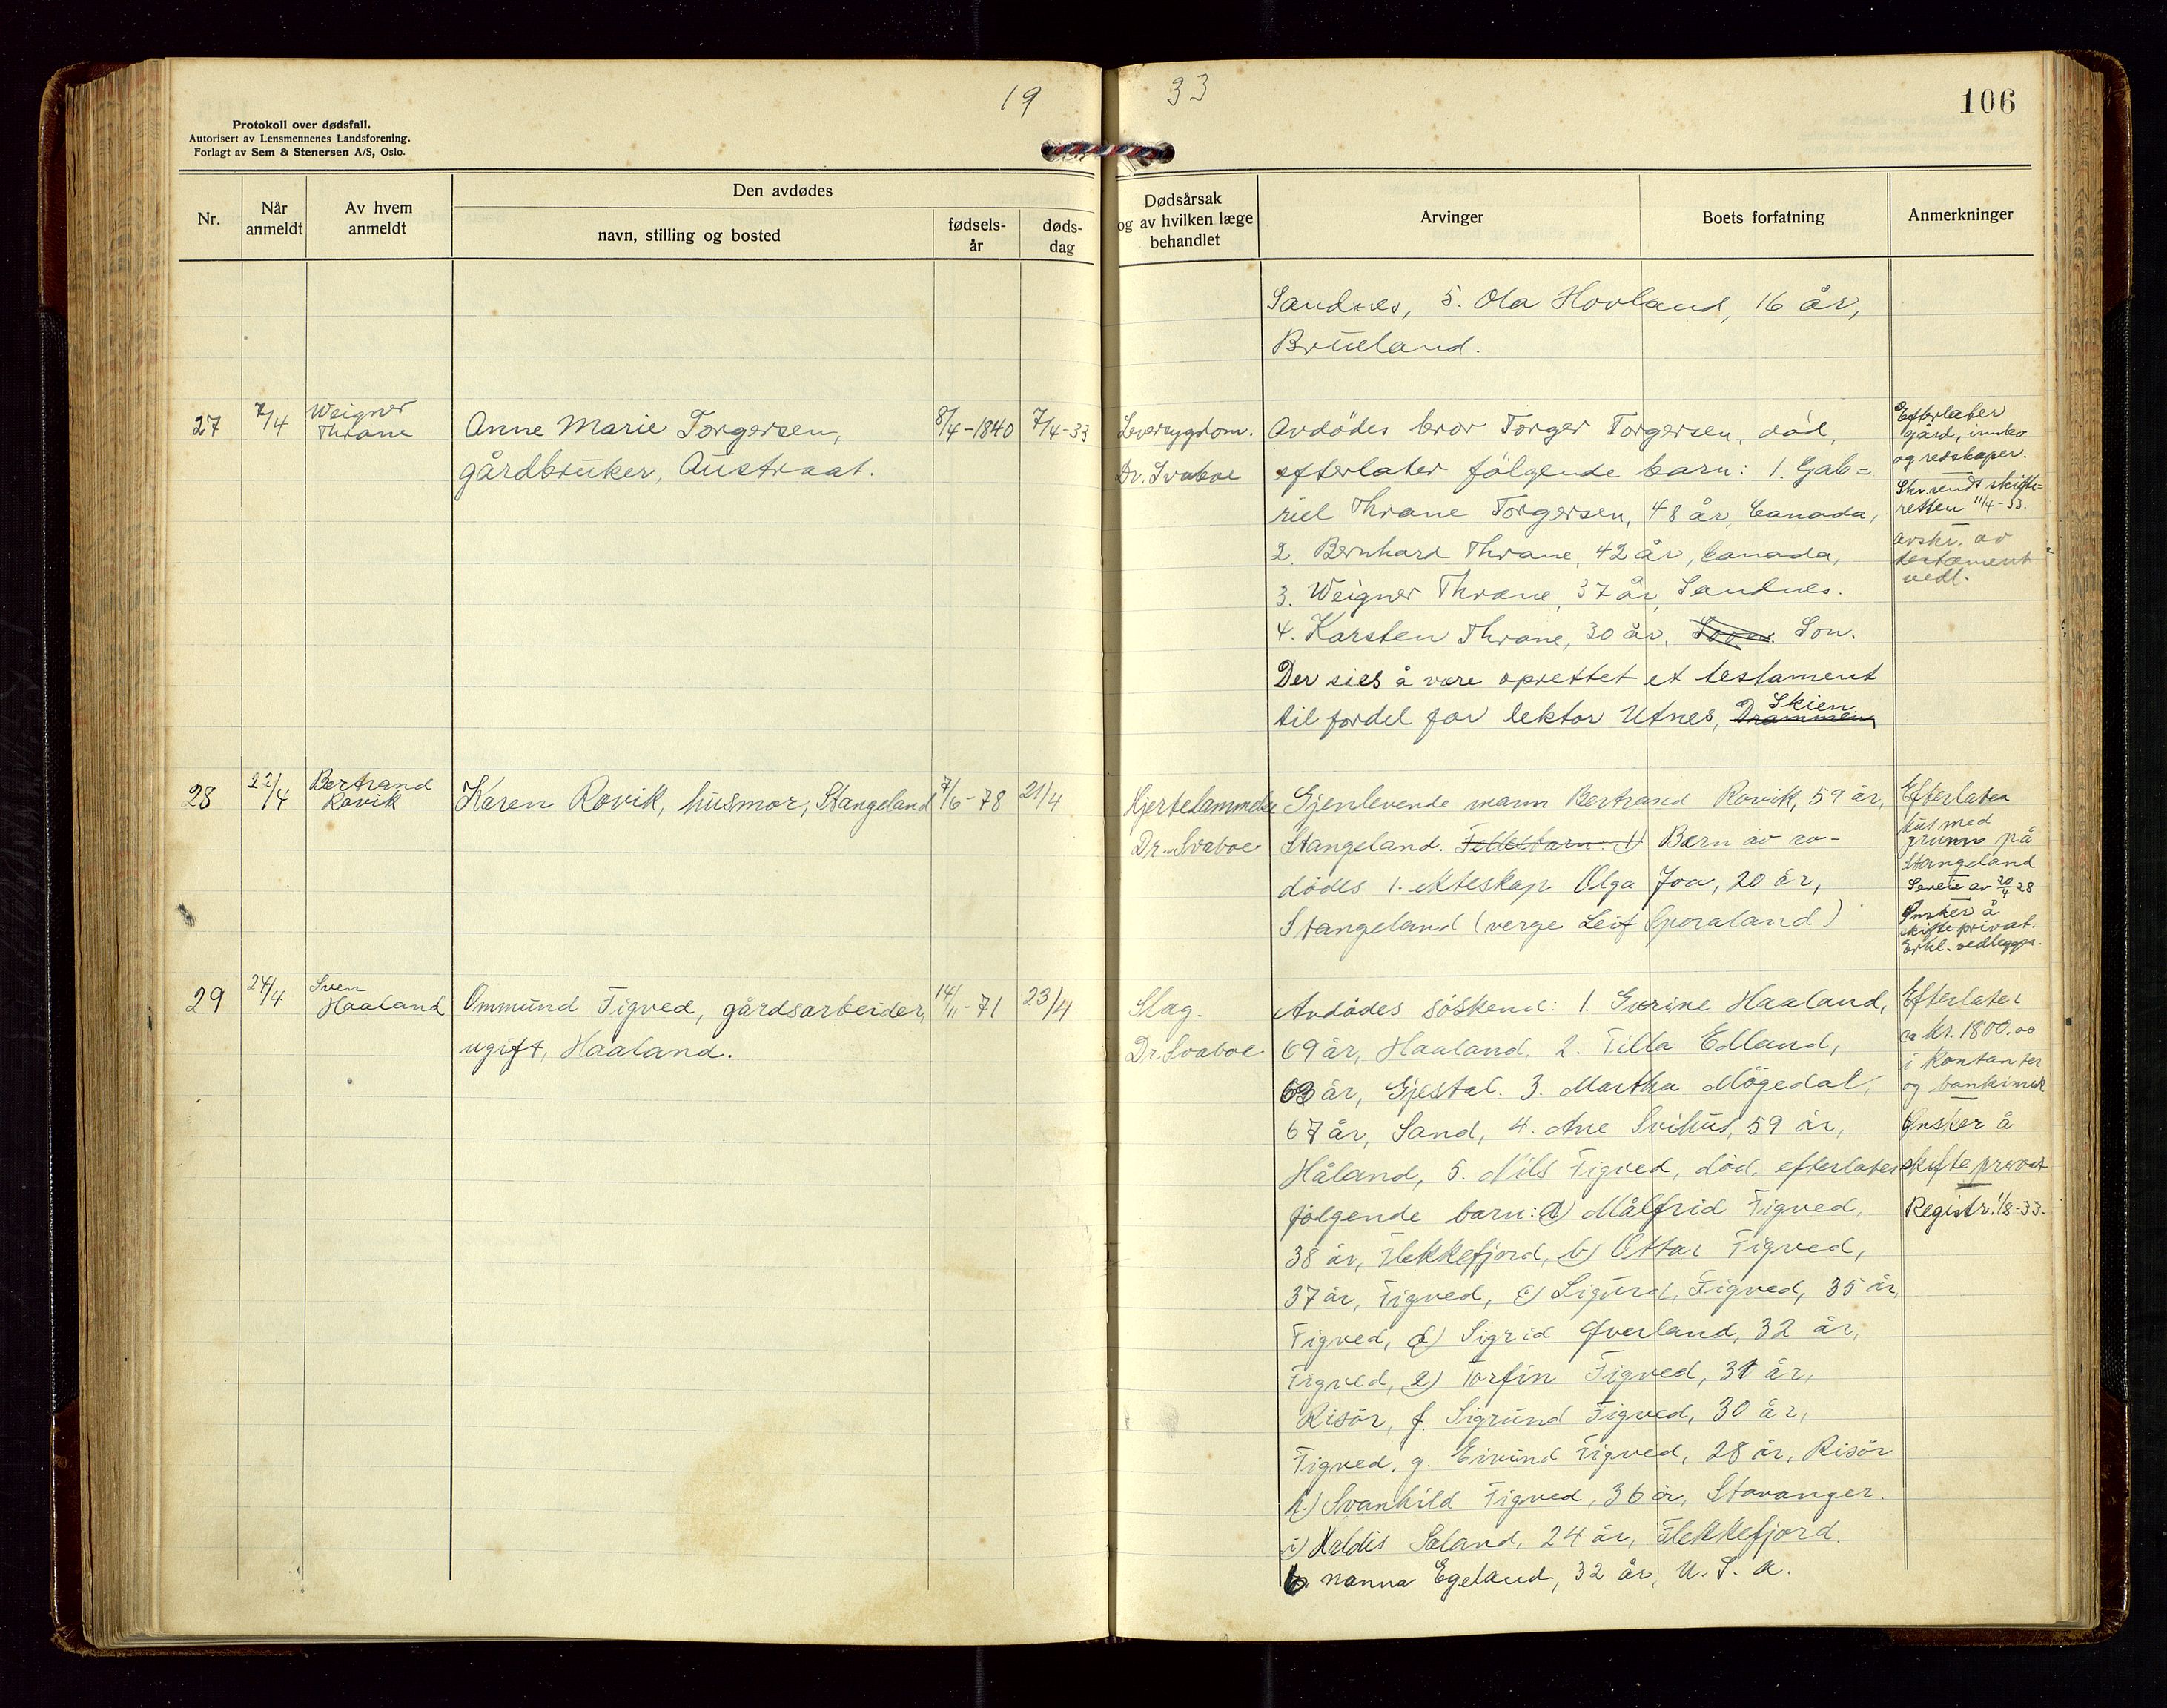 19 33
106
Protokoll over dødsfall.
Autorisert av Lensmennenes Landsforening.
Forlagt av Sem & Stenersen A/S, Oslo.
Nr.
Når anmeldt
Av hvem anmeldt
Den avdødes
navn, stilling og bosted
fødsels-år
døds-dag
Dødsårsak og av hvilken læge behandlet
Arvinger
Boets forfatning
Anmerkninger
Sandnes, 5. Ola Hovland, 16 år,
Brueland.
27
7/4
Weigner
Thrane
Anne Marie Torgersen,
gårdbruker, Austraat.
8/4-1840
7/4-33
Leversygdom.
Dr. Svaboe
Avdödes bror Torger Torgersen, död,
efterlater fölgende barn: 1. Gab=
riel Thrane Torgersen, 48 år, Canada,
2. Bernhard Thrane, 42 år, Canada,
3. Weigner Thrane, 37 år, Sandnes.
4. Karsten Thrane, 30 år, Son.
Der sies å være oprettet et testament
til fordel for lektor Utnes, Drammen Skien
Efterlater
gård, innbo
og redskaper.
Skr. sendt skifte=
retten 11/4-33.
avskr. av
testament
vedl.
28
22/4
Bertrand
Rovik
Karen Rovik, husmor, Stangeland
7/6-78
21/4
Hjertelammelse
Dr. Svaboe
Gjenlevende mann Bertrand Rovik, 59 år,
Stangeland. Fellesbarn: 1) Barn av av-
dödes 1. ekteskap Olga Joa, 20 år,
Stangeland (verge Leif Sporaland)
Efterlater
hus med
grunn på
Stangeland
20/4 28
Ønsker å
skifte privat.
Erkl. vedlegges.
29
24/4
Sven
Haaland
Ommund Tigved, gårdsarbeider,
ugift, Haaland.
14/11-71
23/4
Slag.
Dr. Svaboe
Avdödes söskend: 1. Gurine Haaland,
69 år, Haaland, 2. Tilla Edland,
63 år, Gjestal. 3. Martha Mögedal,
67 år, Sand, 4. Ane Svihus, 59 år,
Håland, 5. Nils Tigved, död, efterlater
følgende barn: a) Målfrid Tigved,
38 år, Flekkefjord, b) Ottar Tigved,
37 år, Tigved, c) Sigurd Tigved, 35 år,
Tigved, d) Sigrid Øverland, 32 år,
Tigved, e) Torfin Tigved, 31 år,
Risör, f. Sigrund Tigved, 30 år,
Tigved, g. Eivind Tigved, 28 år, Risör
h.) Svanhild Tigved, 36 år, Stavanger.
i) Haldis Saland, 24 år, Flekkefjord.
6. Nanna Egeland, 32 år, U. S. A.
Efterlater
ca kr. 1800.00
i kontanter
og bankinnsk
Ønsker å
skifte privat
Registr. 1/8-33.